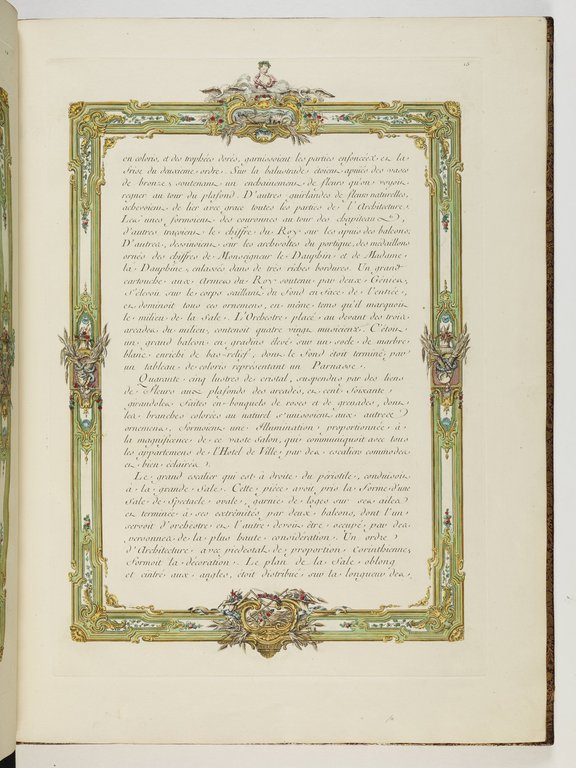 15
en coloris, et des trophées dorés, garnissoient les parties enfoncées et la
frise du deuxieme ordre. Sur la balustrade etoient apuiés des vases
de bronze, soutenant un enchainement de fleurs qu'on voyoit
regner au tour du plafond. D'autres guirlandes de fleurs naturelles,
achevoient de lier avec grace toutes les parties de l'Architecture.
Les unes formoient des couronnes au tour des chapiteaux,
d'autres traçoient le chiffre du Roy sur les apuis des balcons;
D'autres, dessinoient sur les archivoltes du portique, des médaillons
ornés des chiffres de Monseigneur le Dauphin et de Madame
la Dauphine, enlassés dans de tres riches bordures. Un grand
cartouche aux Armes du Roy soutenu par deux Génies,
s'elevoit sur le corps saillant du fond en face de l'entrée,
et dominoit tous ces ornemens, en même tens qu'il marquoit
le milieu de la Sale. L'Orchestre placé au devant des trois
arcades du milieu, contenoit quatre vingt musiciens. C'etoit
un grand balcon en gradins élevé sur un socle de marbre
blanc enrichi de bas-relief, dont le fond étoit terminé par
un tableau de coloris representant un Parnasse.
Quarante cinq lustres de cristal, suspendus par des liens
de fleurs aux plafonds des arcades, et cent soixante
girandoles faites en bouquets de roses et de grenades, dont
les branches colorées au naturel s'unissoient aux autres
ornemens, formoient une Illumination proportionnée à
la magnificence de ce vaste Salon, qui communiquoit avec tous
les appartemens de l'Hotel de Ville, par des escaliers commodes
et bien eclairés.
Le grand escalier qui est à droite du péristile, conduisoit
à la grande Sale. Cette piéce avoit pris la forme d'une
Sale de Spectacle ovale, garnie de loges sur ses ailes
et terminée à ses extrémités par deux balcons, dont l'un
servoit d'orchestre et l'autre devoit être occupé par des
personnes de la plus haute considération. Un ordre
d'Architecture avec piedestal de proportion Corinthienne,
formoit la décoration. Le plan de la Sale oblong
et cintré aux angles, étoit distribué sur la longueur des